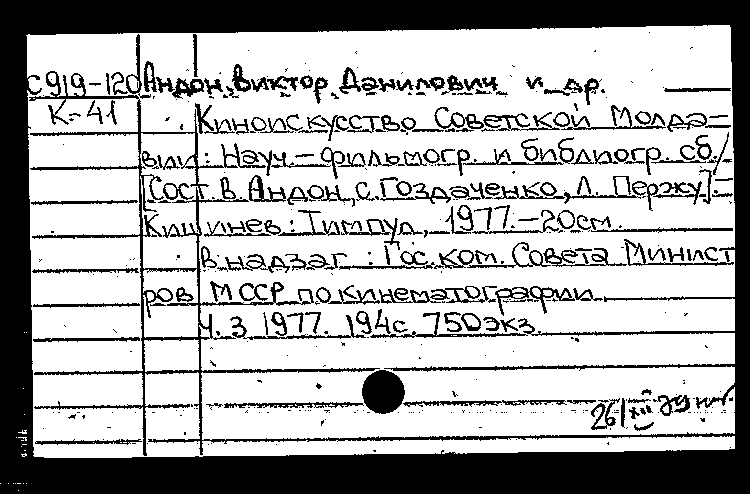 С919-120 Андон, Виктор Данилович и др.
К-41 Киноискусство Советской Молда-
вии: Науч.-фильмогр. и библиогр. сб./
[Сост. В. Андон, С. Гоздаченко, Л. Пержу].-
Кишинев: Тимпул, 1977.-20см.
В надзаг.: Гос. ком. Совета Минист
ров МССР по кинематографии.
Ч. 3 1977. 194с. 750экз.
26/XII 79